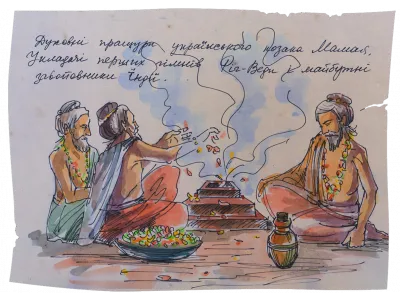 Духовні пращури українського козака Мамая.
Укладачі перших гімнів Ріг-Веди і майбутні
завойовники Індії. . . .